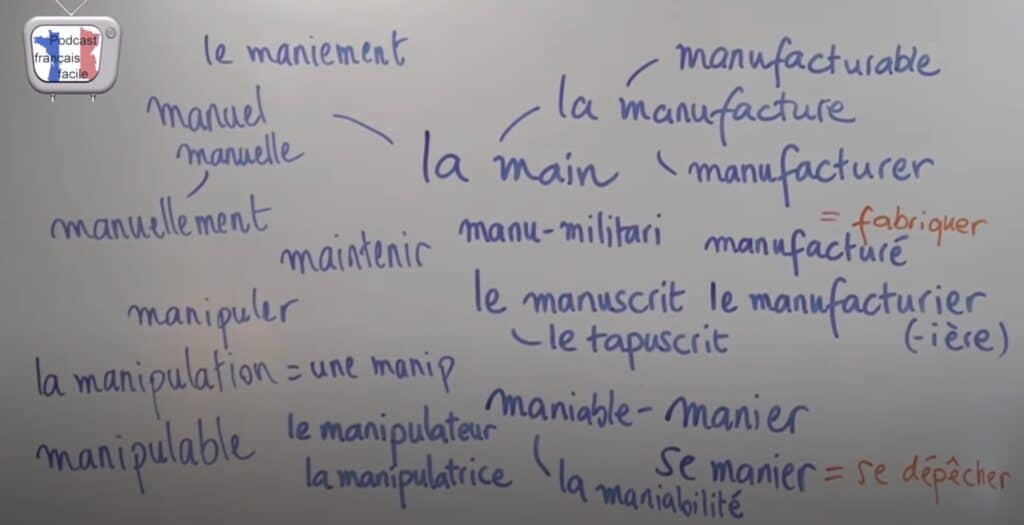 Podcast
français
facile
le maniement
manufacturable
manuel
la manufacture
manuelle
la main
manufacturer
= fabriquer
manuellement
manu-militari
manufacturé
maintenir
manipuler
le manuscrit
le manufacturier
le tapuscrit
(-ière)
la manipulation = une manip
maniable - manier
manipulable
le manipulateur
la manipulatrice
se manier = se dépêcher
la maniabilité